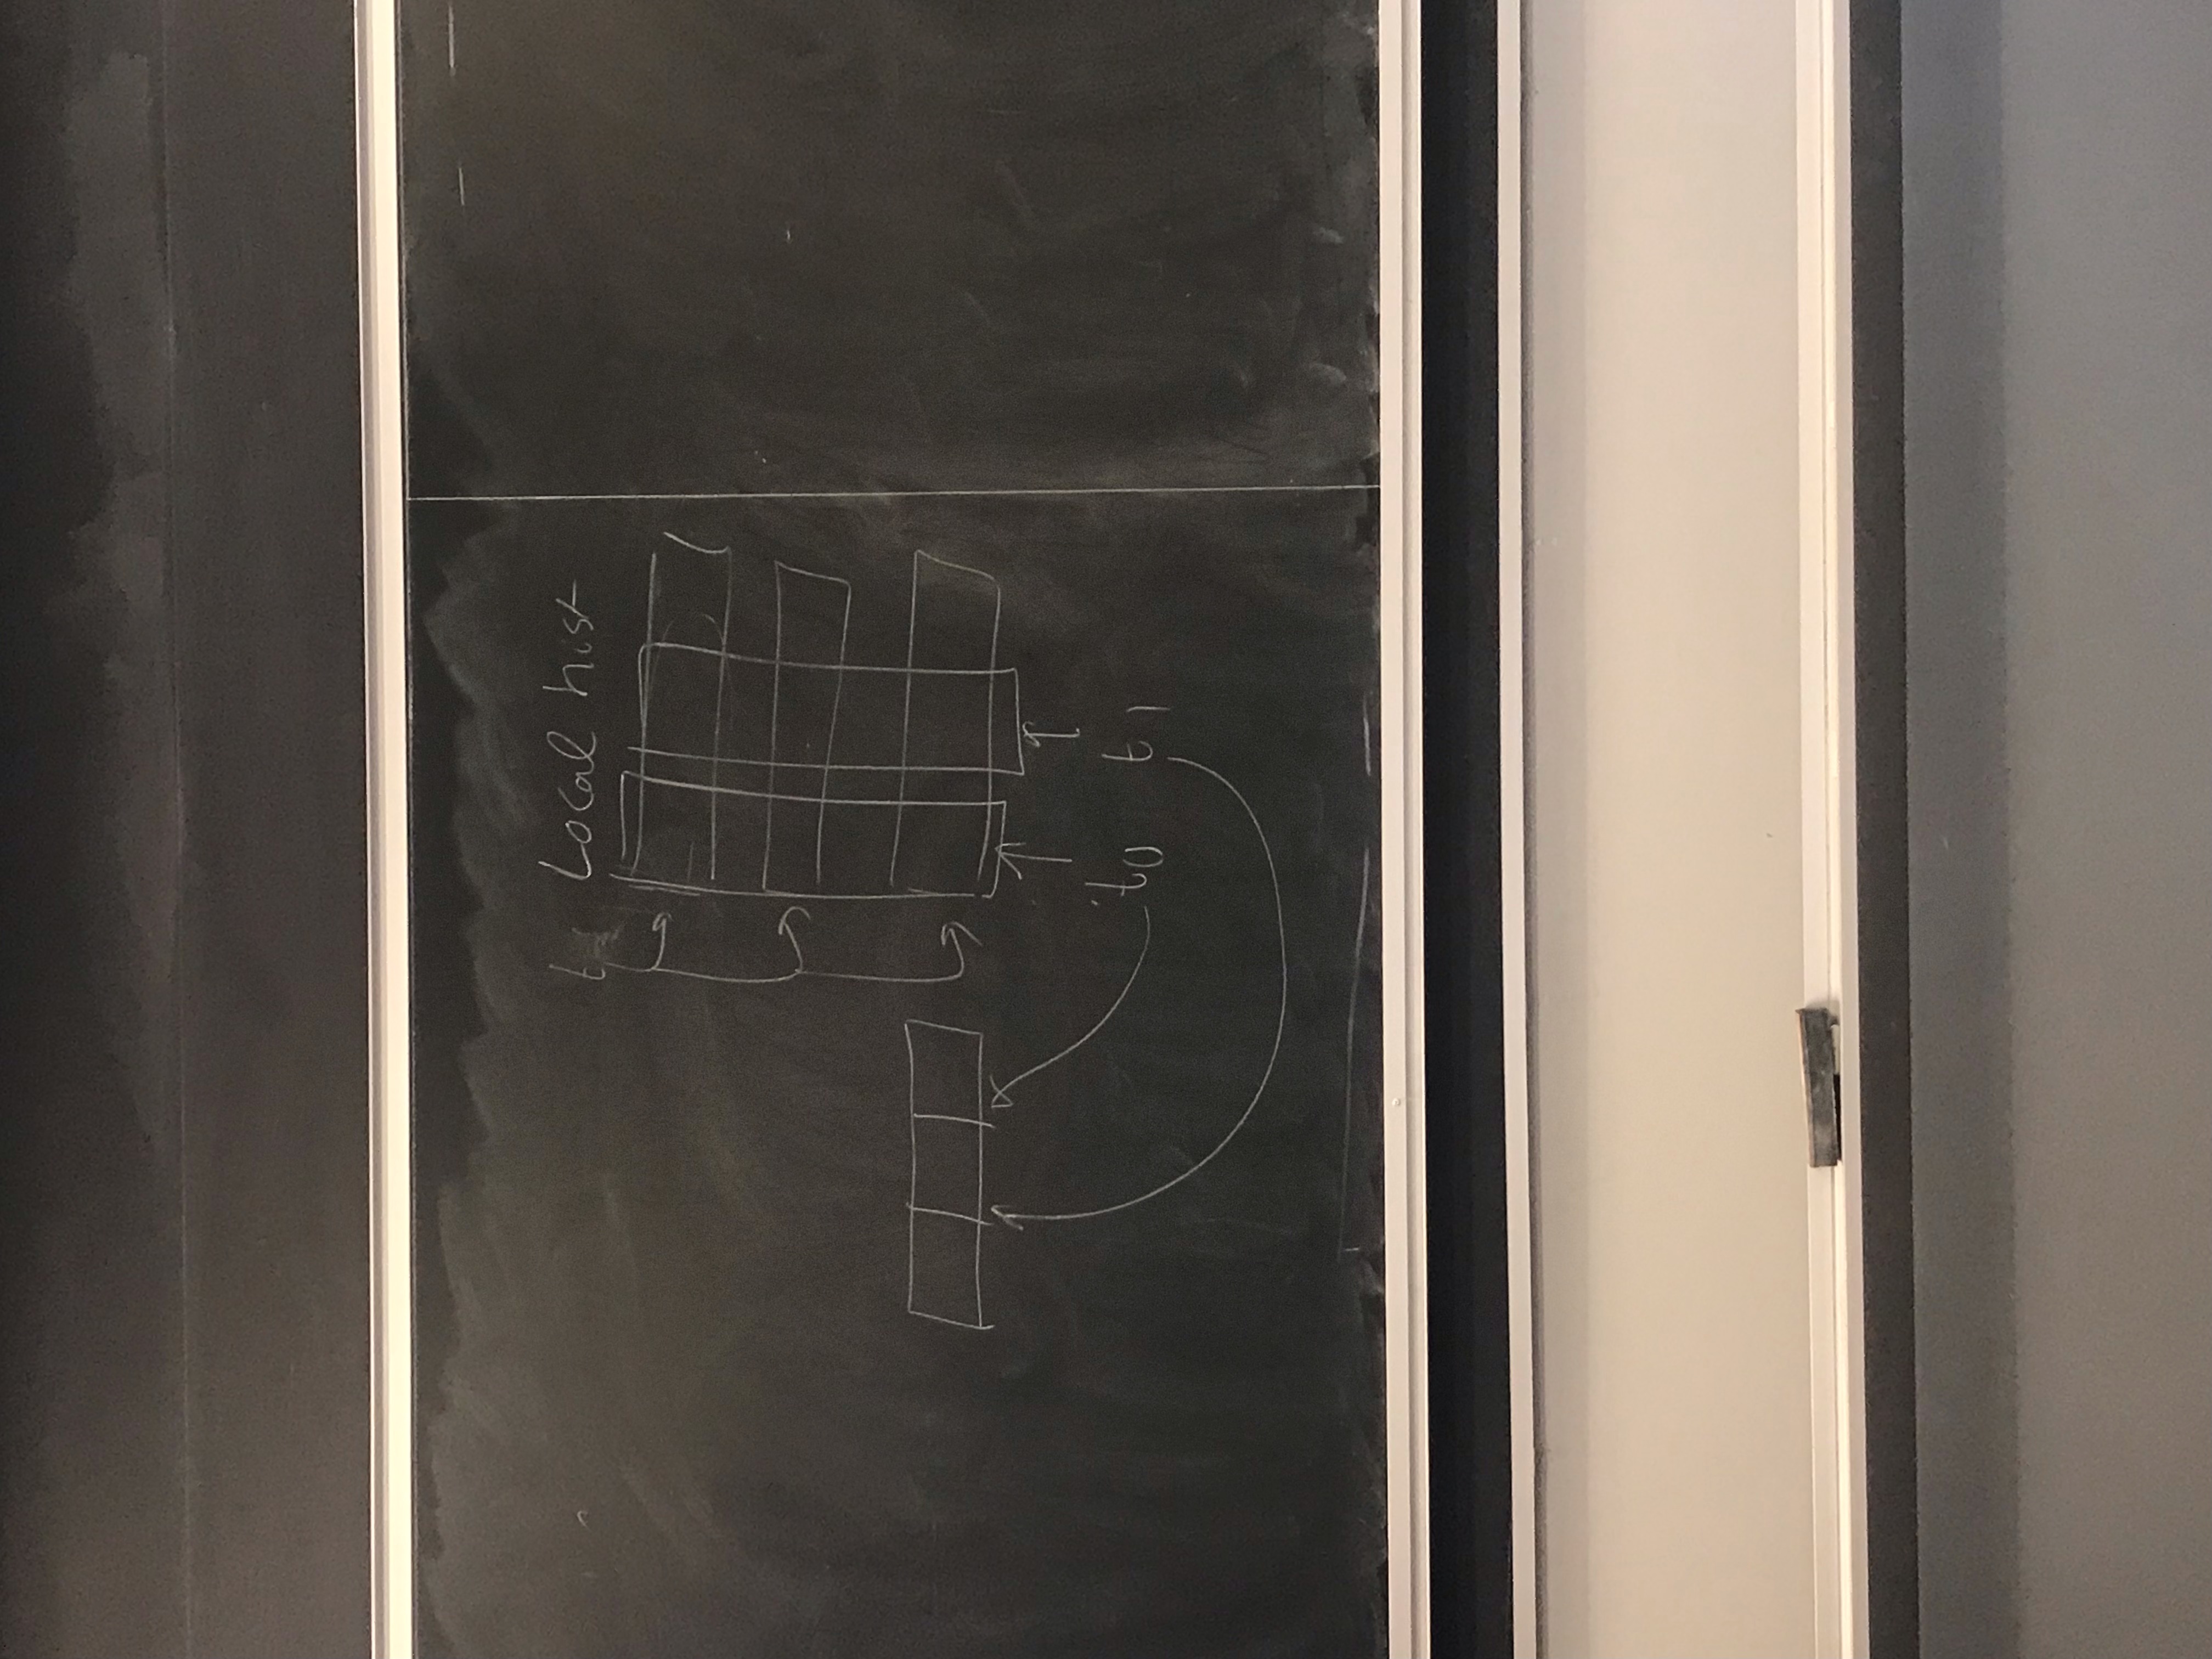 t Local hist
t0 t1